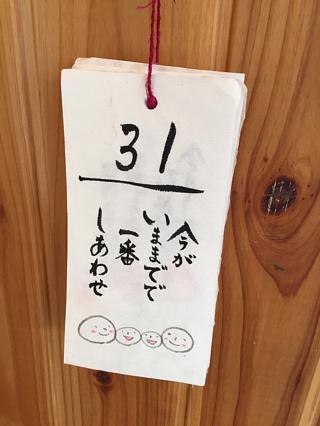 31
今が
いままでで
一番
しあわせ